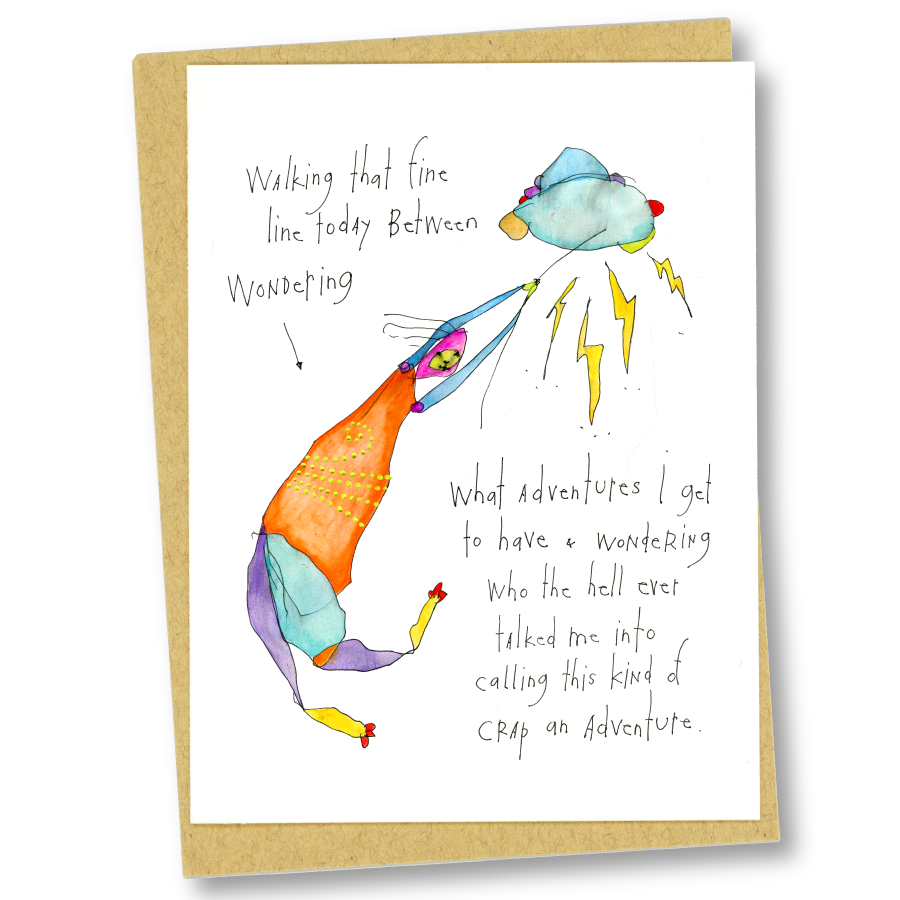 Walking that fine
line today Between
Wondering
What adventures i get
to have & wondering
who the hell ever
talked me into
calling this kind of
crap an adventure.